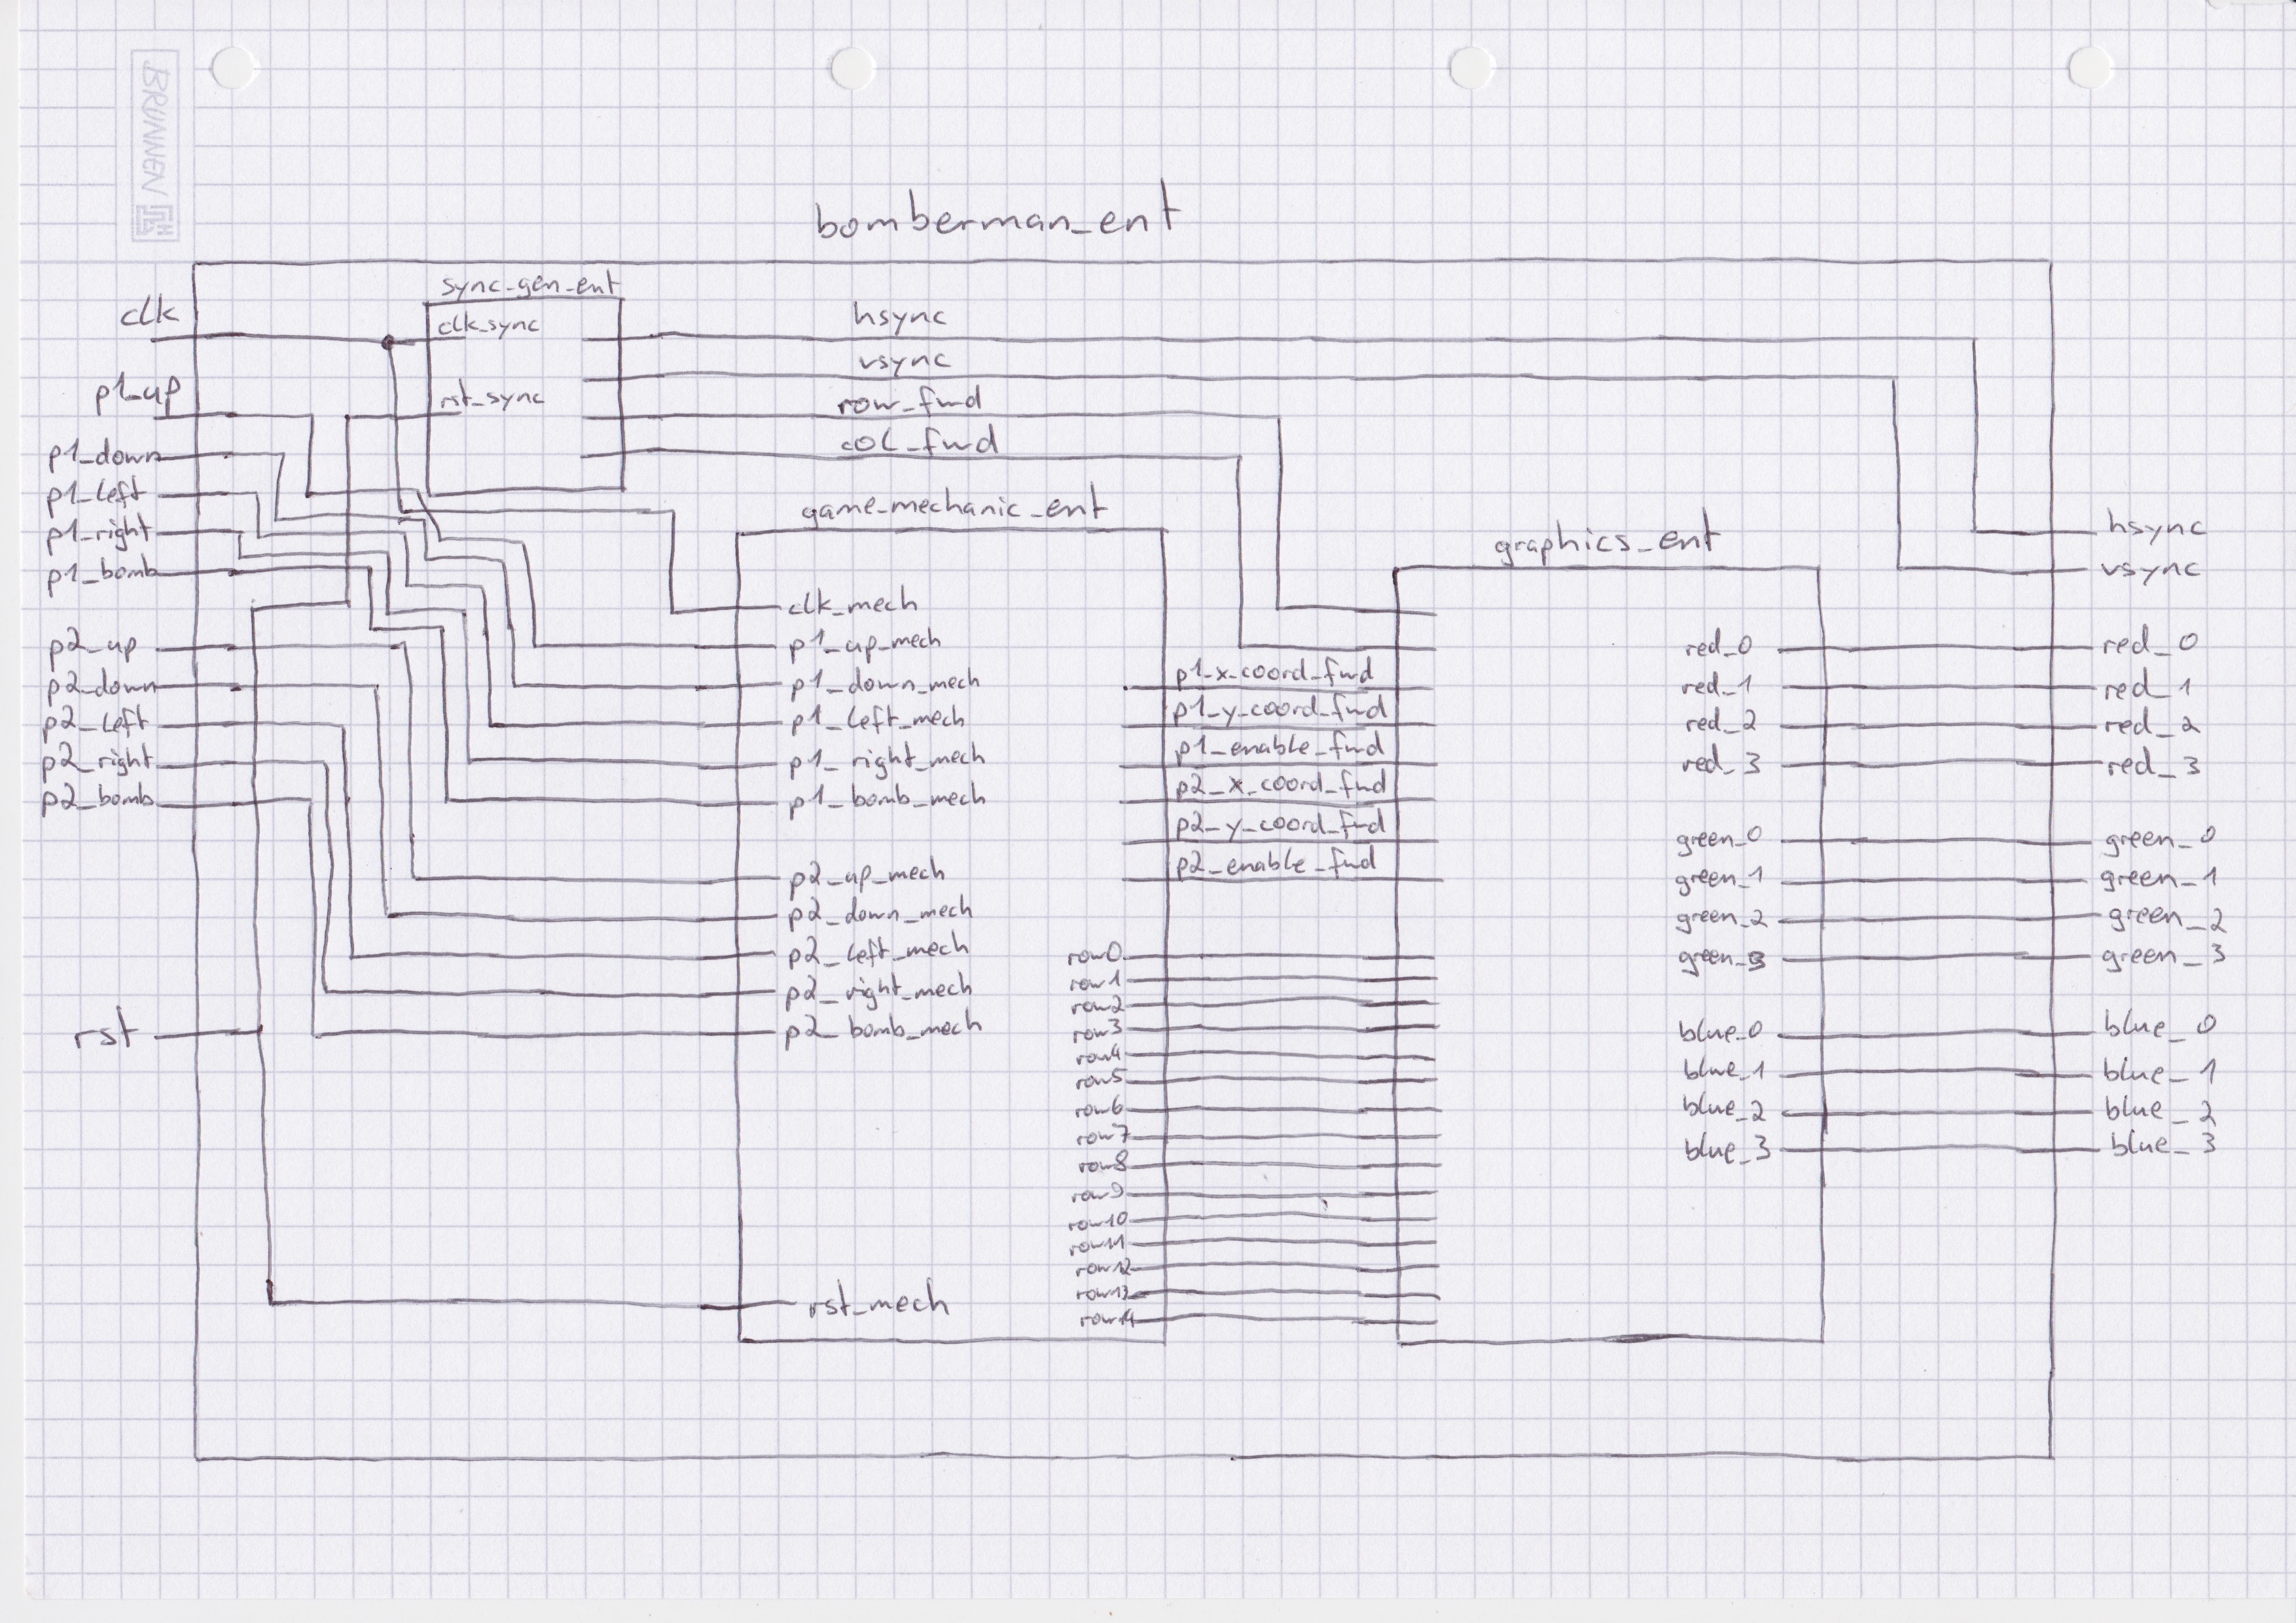 BRUNNEN
bomberman_ent
sync_gen_ent
clk
clk_sync
hsync
vsync
p1_up
rst_sync
row_fwd
col_fwd
p1_down
p1_left
p1_right
p1_bomb
p2_up
p2_down
p2_left
p2_right
p2_bomb
rst
game_mechanic_ent
clk_mech
p1_up_mech
p1_down_mech
p1_left_mech
p1_right_mech
p1_bomb_mech
p2_up_mech
p2_down_mech
p2_left_mech
p2_right_mech
p2_bomb_mech
rst_mech
p1_x_coord_fwd
p1_y_coord_fwd
p1_enable_fwd
p2_x_coord_fwd
p2_y_coord_fwd
p2_enable_fwd
row0
row1
row2
row3
row4
row5
row6
row7
row8
row9
row10
row11
row12
row13
row14
graphics_ent
red_0
red_1
red_2
red_3
green_0
green_1
green_2
green_3
blue_0
blue_1
blue_2
blue_3
hsync
vsync
red_0
red_1
red_2
red_3
green_0
green_1
green_2
green_3
blue_0
blue_1
blue_2
blue_3